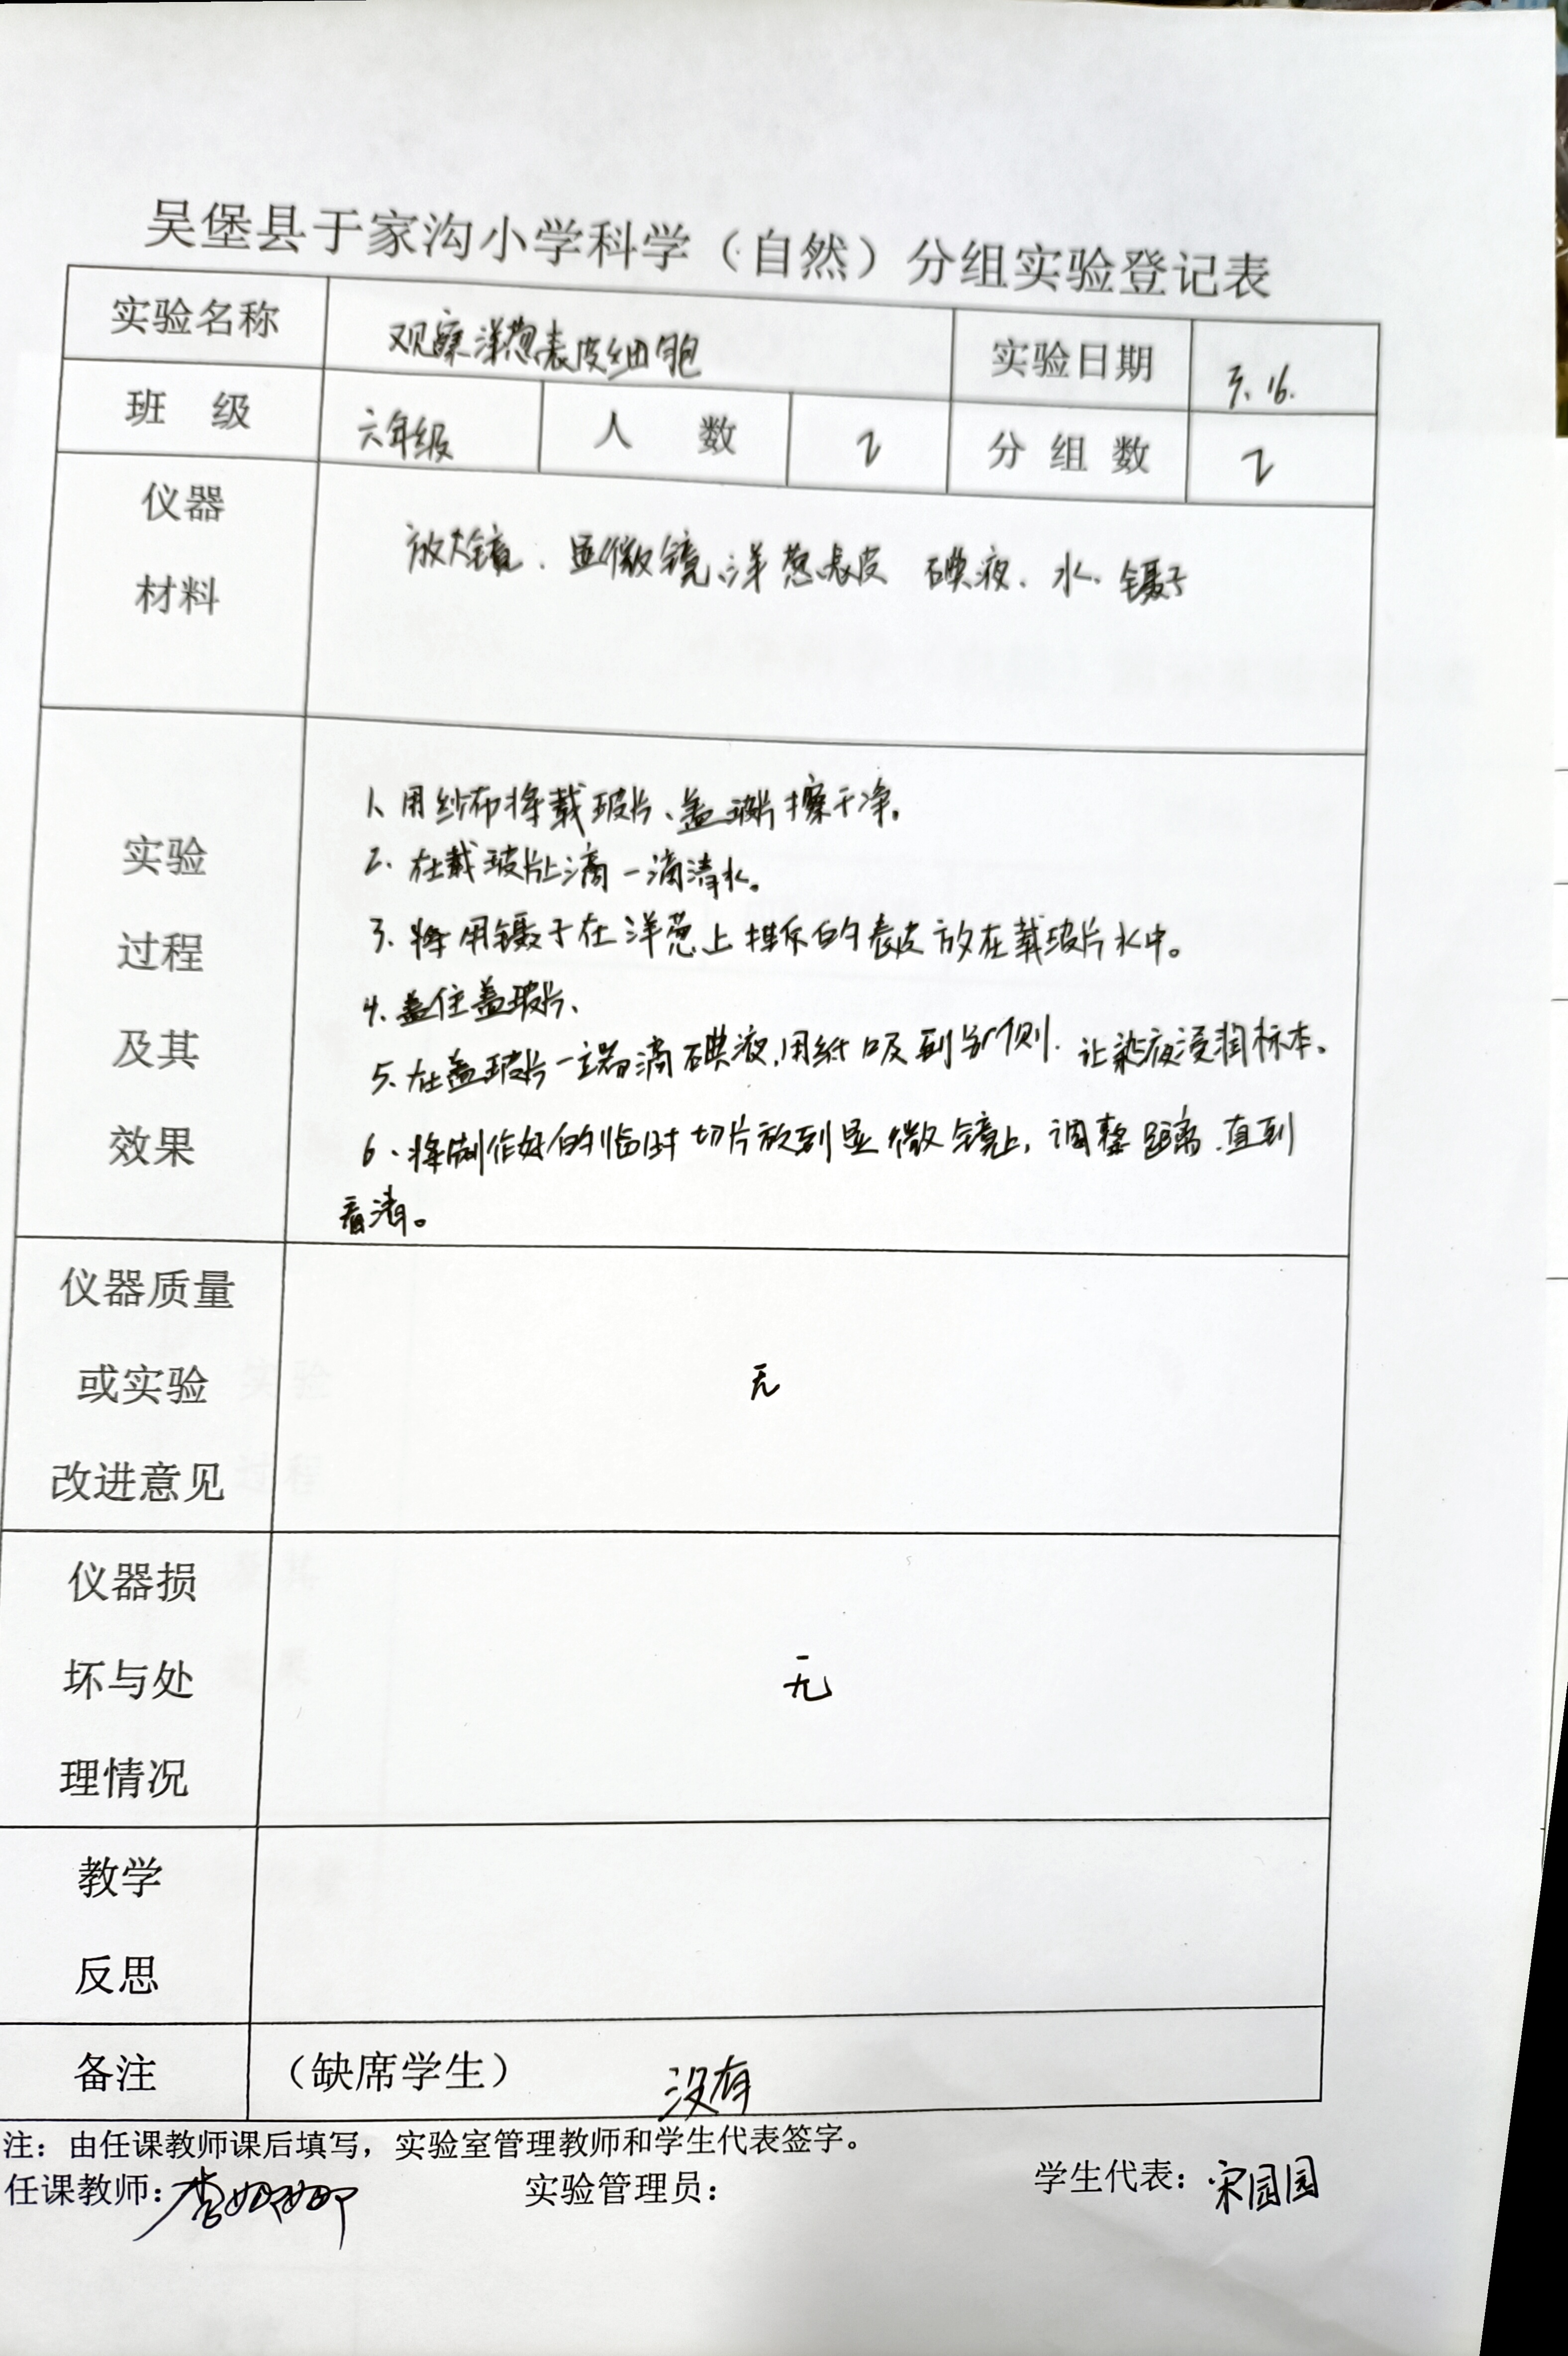 吴堡县于家沟小学科学（自然）分组实验登记表
实验名称 观察洋葱表皮细胞 实验日期 3.16.
班 级 六年级 人 数 2 分组数 2
仪器
材料
放大镜、显微镜、洋葱表皮 碘液、水、镊子
实验
过程
及其
效果
1、用纱布将载玻片、盖玻片擦干净。
2、在载玻片上滴一滴清水。
3、将用镊子在洋葱上撕的表皮放在载玻片水中。
4、盖住盖玻片、
5、在盖玻片一端滴碘液,用纸吸到另侧.让染液浸润标本。
6、将制作好的临时切片放到显微镜上,调整距离.直到
看清。
仪器质量
或实验
改进意见
无
仪器损
坏与处
理情况
无
教学
反思
备注 （缺席学生） 没有
注：由任课教师课后填写，实验室管理教师和学生代表签字。
任课教师：李娜娜 实验管理员： 学生代表：宋园园